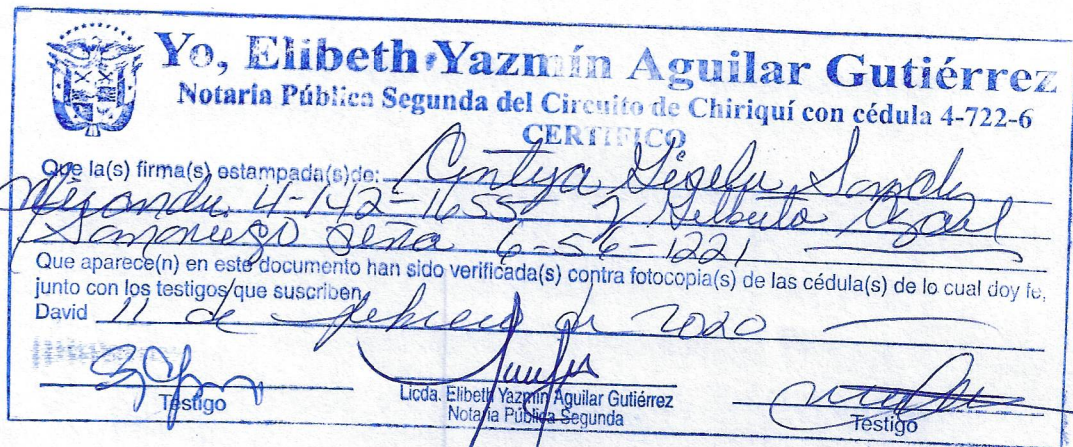 Yo, Elibeth Yazmín Aguilar Gutiérrez
Notaria Pública Segunda del Circuito de Chiriquí con cédula 4-722-6
CERTIFICO
Que la(s) firma(s) estampada(s)de: Cintya Gisela
4-142-1655 y Gilberto
Samaniego Peña 6-56-1221
Que aparece(n) en este documento han sido verificada(s) contra fotocopia(s) de las cédula(s) de lo cual doy fe,
junto con los testigos que suscriben,
David 11 de febrero de 2020
Testigo
Licda. Elibeth Yazmín Aguilar Gutiérrez
Notaria Pública Segunda
Testigo